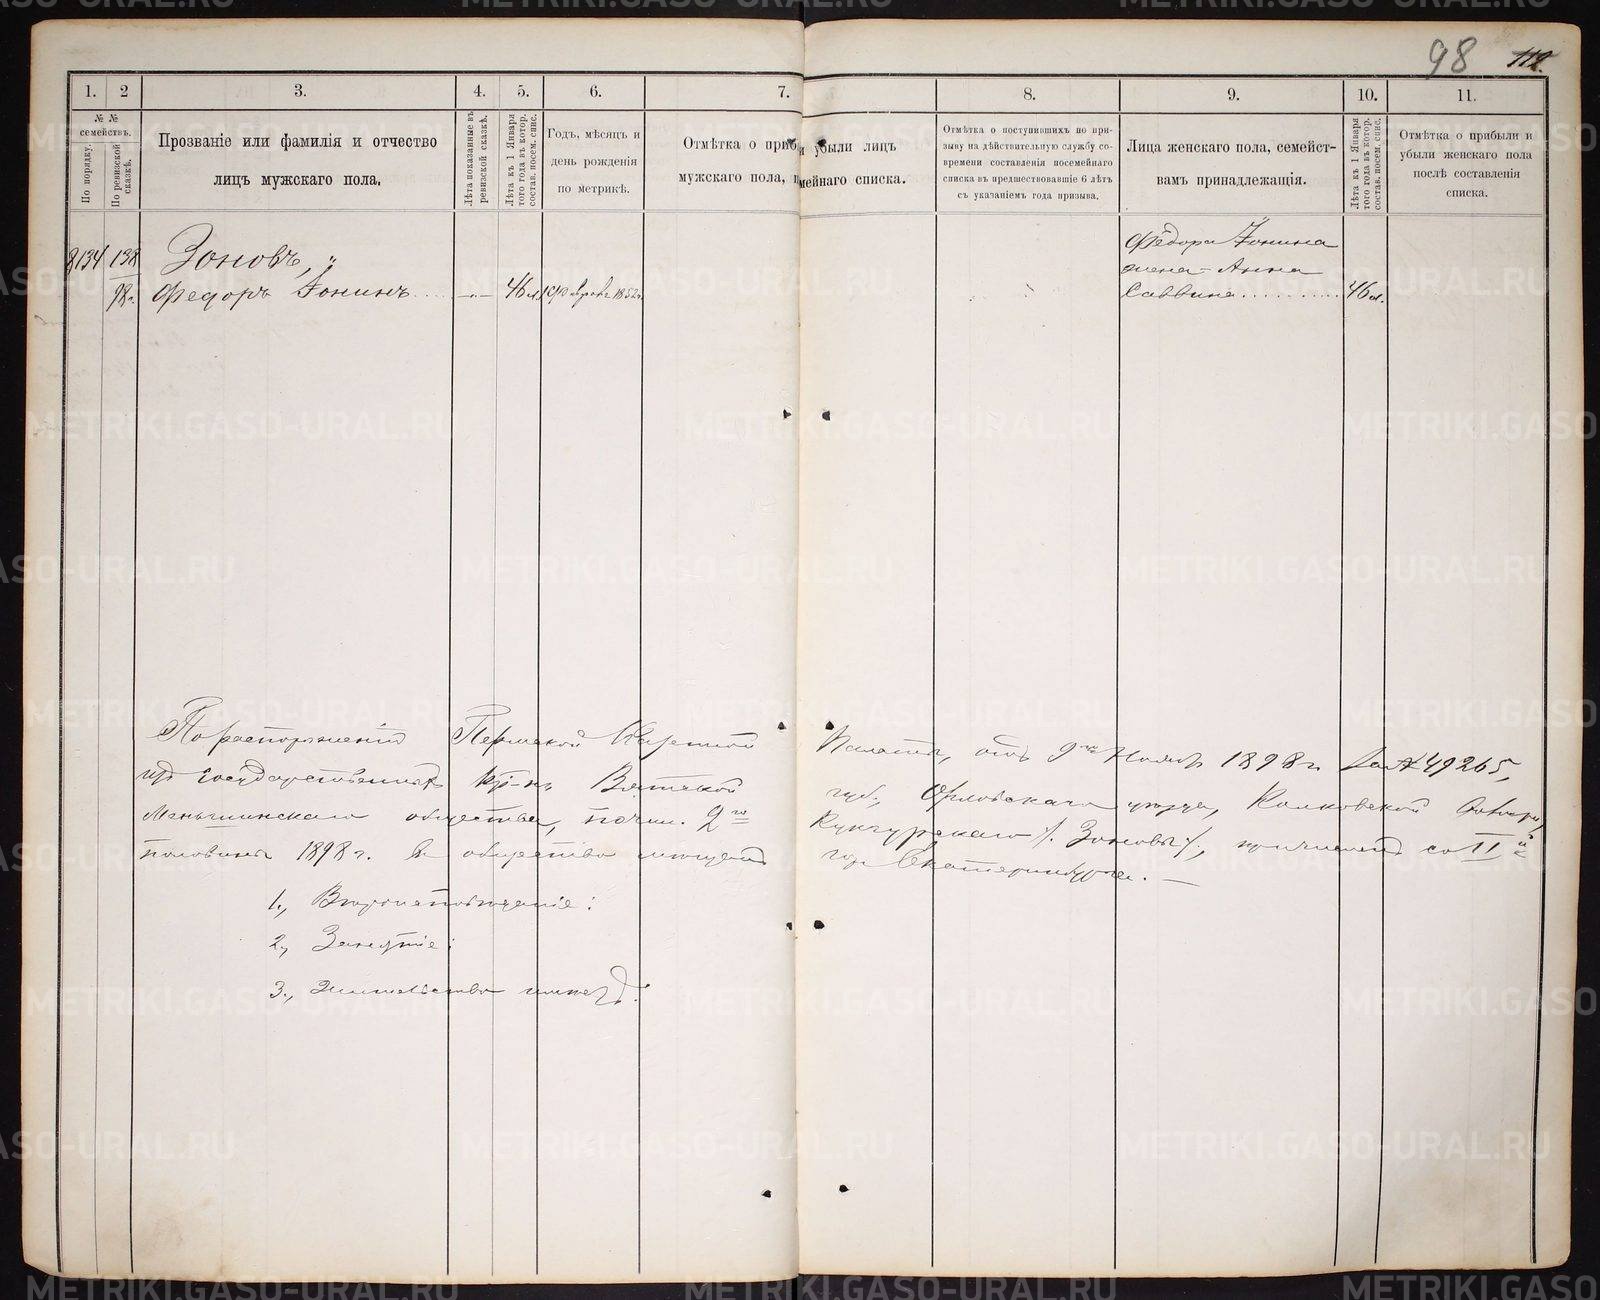 98 112
1. 2 3. 4. 5. 6. 7. 8. 9. 10. 11.
№ № семействъ.
По порядку.
По ревизской сказкѣ.
Прозваніе или фамилія и отчество
лицъ мужскаго пола.
Лѣта показанные въ ревизской сказкѣ.
Лѣта къ 1 Января того года въ котор. состав. посем. спис.
Годъ, мѣсяцъ и
день рожденія
по метрикѣ.
Отмѣтка о приб и убыли лицъ
мужскаго пола, п мейнаго списка.
Отмѣтка о поступившихъ по при-
зыву на дѣйствительную службу со-
времени составленія посемейнаго
списка въ предшествовавшіе 6 лѣтъ
съ указаніемъ года призыва.
Лица женскаго пола, семейст-
вамъ принадлежащія.
Лѣта къ 1 Января того года въ котор. состав. посем. спис.
Отмѣтка о прибыли и
убыли женскаго пола
послѣ составленія
списка.
134 138 Зоновъ,
98 г. Федоръ Іонинъ 46 л. 1852 г.
Ѳедора Іонина
жена - Анна
Саввина 46 л.
По распоряженію Пермской Казенной Палаты, отъ 9го Ноябр 1898 г. за № 49265,
изъ государственныхъ кр-нъ Вятской губ., Орловскаго уѣзда,
общества, почин. 2го /. Зоновы /., причисленъ со II й
половины 1898 г. въ общество мѣщанъ гор. Екатеринбурга. —
1., Вѣроисповѣданіе:
2., Занятіе:
3., Жительство имѣетъ:
METRIKI.GASO-URAL.RU